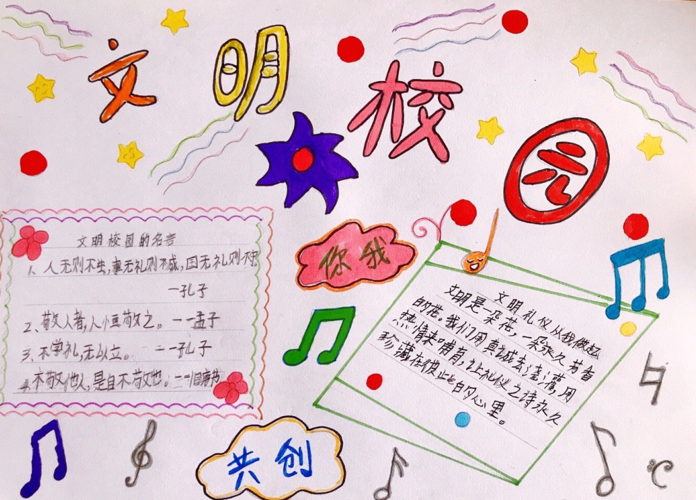 文明校园
文明校园的名言
1、人无则不生,事无礼则不成,国无礼则不宁
一孔子
2、敬人者,人恒敬之。一一孟子
三、不学礼,无以立。一一孔子
4.不敬他人,是自不敬也。一一旧唐书
你我
共创
文明礼仪从我做起
文明是一朵花,一朵永久芳香
的花。我们用真诚去浇灌,用
热情来哺育,让礼仪之诗永久
珍藏在彼此的心里。